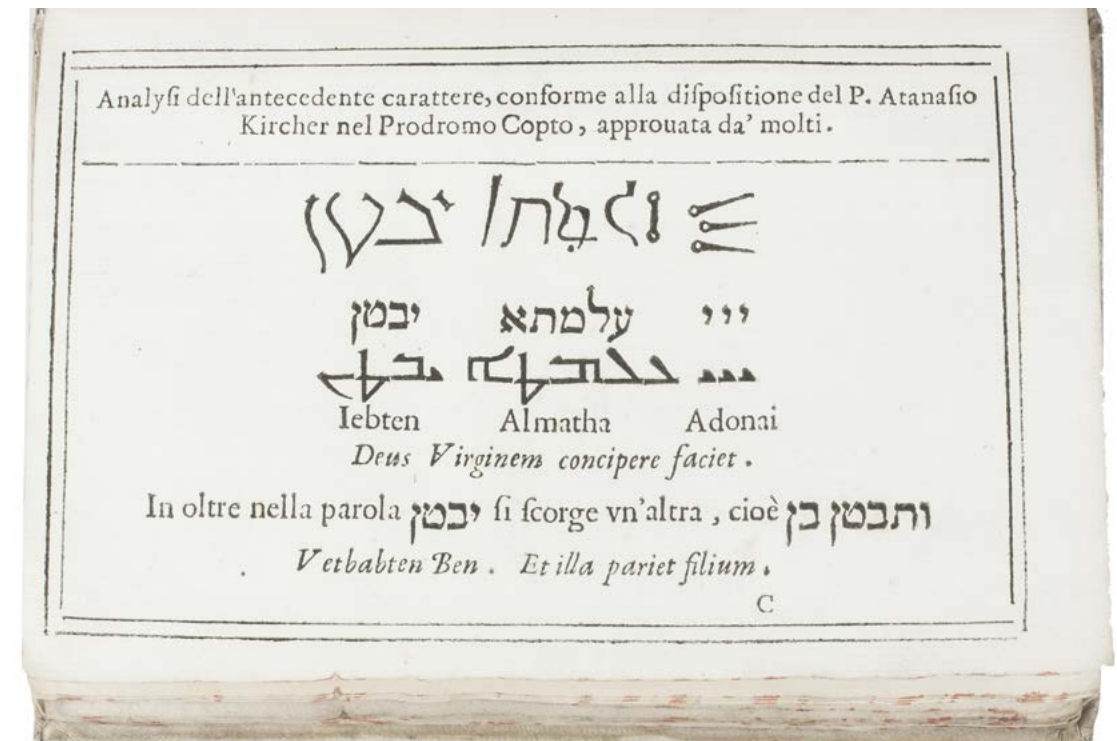 Analyſi dell'antecedente carattere, conforme alla diſpoſitione del P. Atanaſio
Kircher nel Prodromo Copto, approuata da' molti.
ייי עלמתא יבטן
Adonai Almatha Iebten
Deus Virginem concipere faciet.
In oltre nella parola יבטן ſi ſcorge vn'altra, cioè ותבטן בן
Vetbabten Ben. Et illa pariet filium.
C